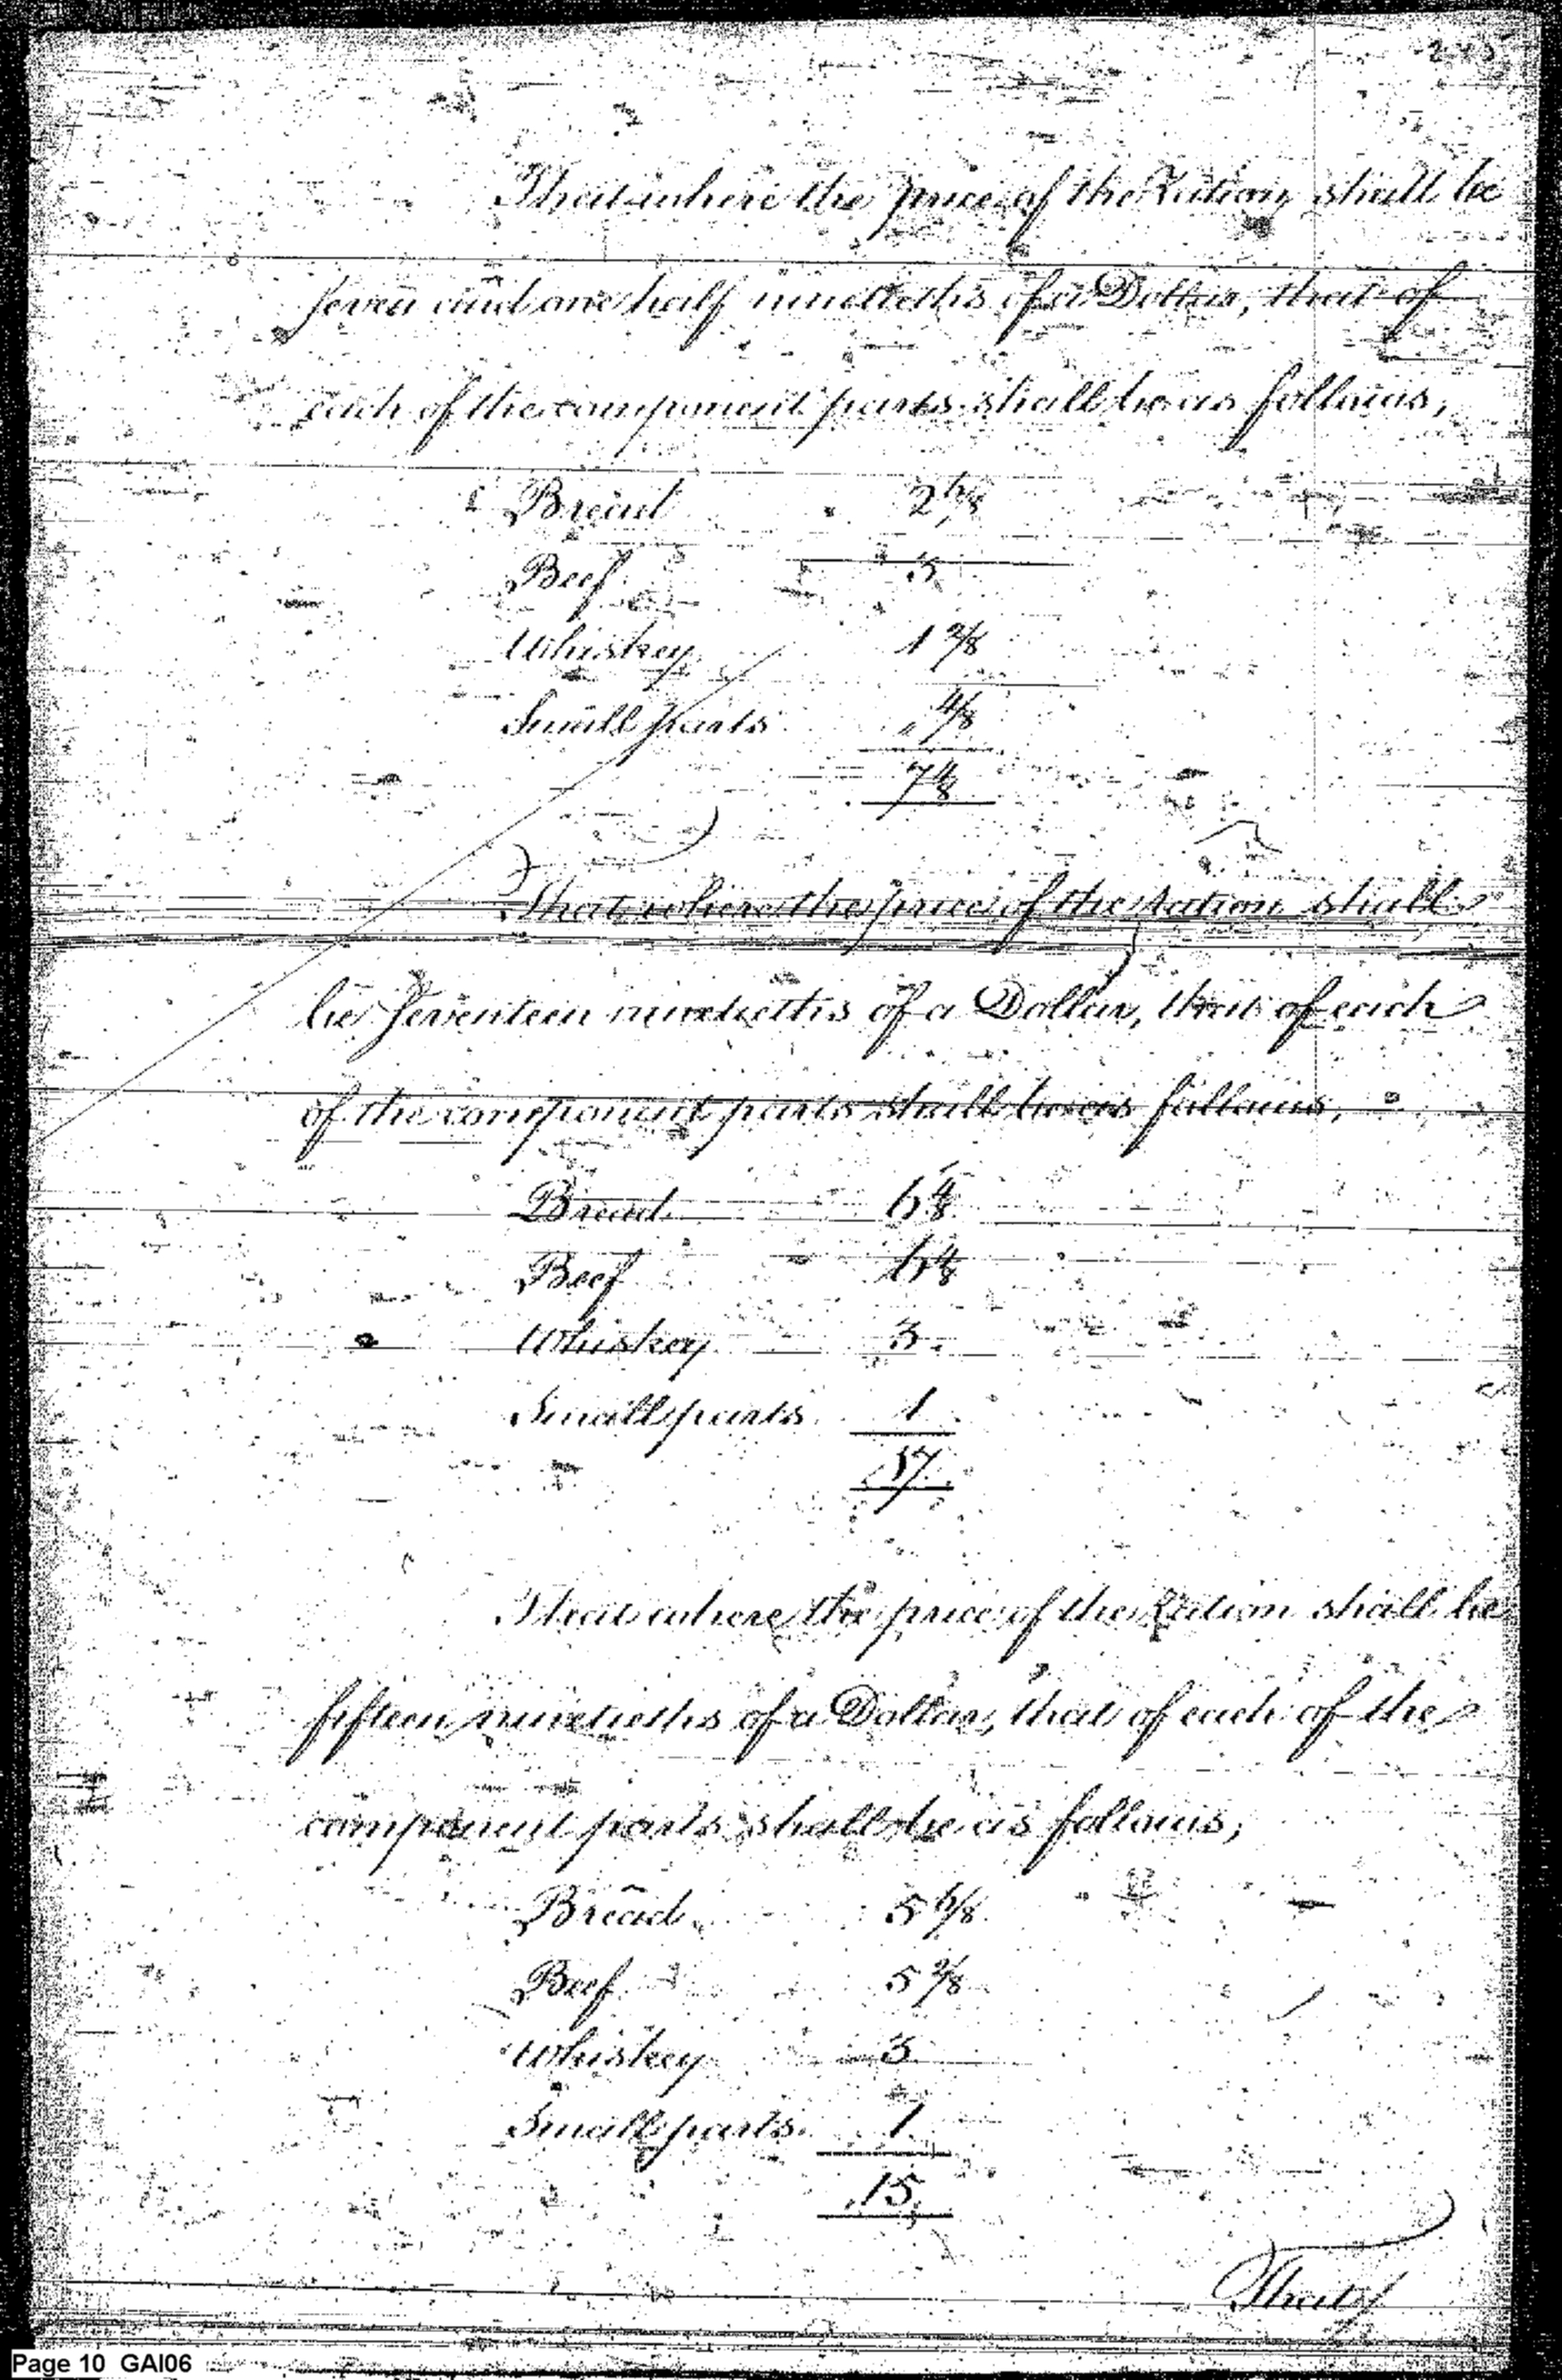 That where the price of the Ration shall be
seven and one half ninetieths of a Dollar, that of
each of the component parts shall be as follows,
Bread 2 6/8
Beef 3
Whiskey 1 2/8
Small parts " 4/8
7 4/8
That where the price of the Ration shall
be seventeen ninetieths of a Dollar, that of each
of the component parts shall be as follows,
Bread 6 4/8
Beef 6 4/8
Whiskey 3
Small parts 1
17
That where the price of the Ration shall be
fifteen ninetieths of a Dollar, that of each of the
component parts shall be as follows,
Bread 5 6/8
Beef 5 2/8
Whiskey 3
Small parts 1
15
That
Page 10 GAI06